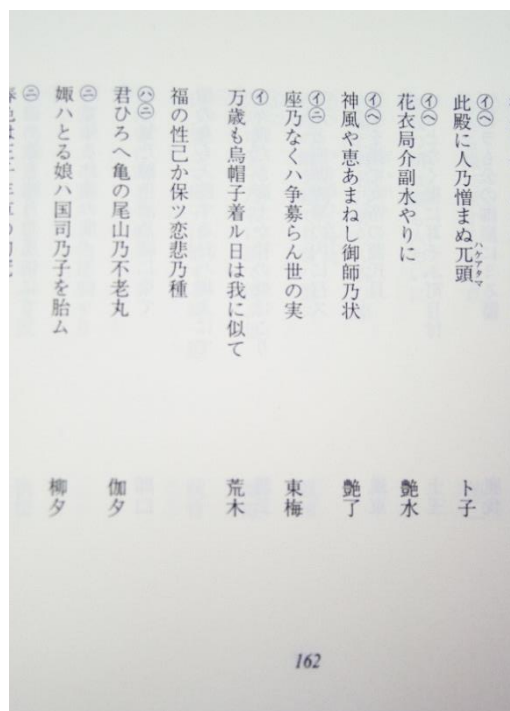 ㋑㋬
此殿に人乃憎まぬ兀頭 ハケアタマ
ト子
㋑㋬
花衣局介副水やりに
艶水
㋑㋬
神風や恵あまねし御師乃状
艶了
㋑㋥
座乃なくハ争募らん世の実
東梅
㋑
万歳も烏帽子着ル日は我に似て
荒木
福の性己か保ツ恋悲乃種
㋩㋥
君ひろへ亀の尾山乃不老丸
伽夕
㋥
娵ハとる娘ハ国司乃子を胎ム
柳夕
㋥
162